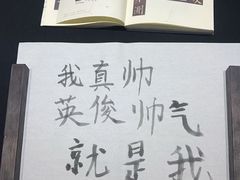 我真帅
英俊帅气
就是我